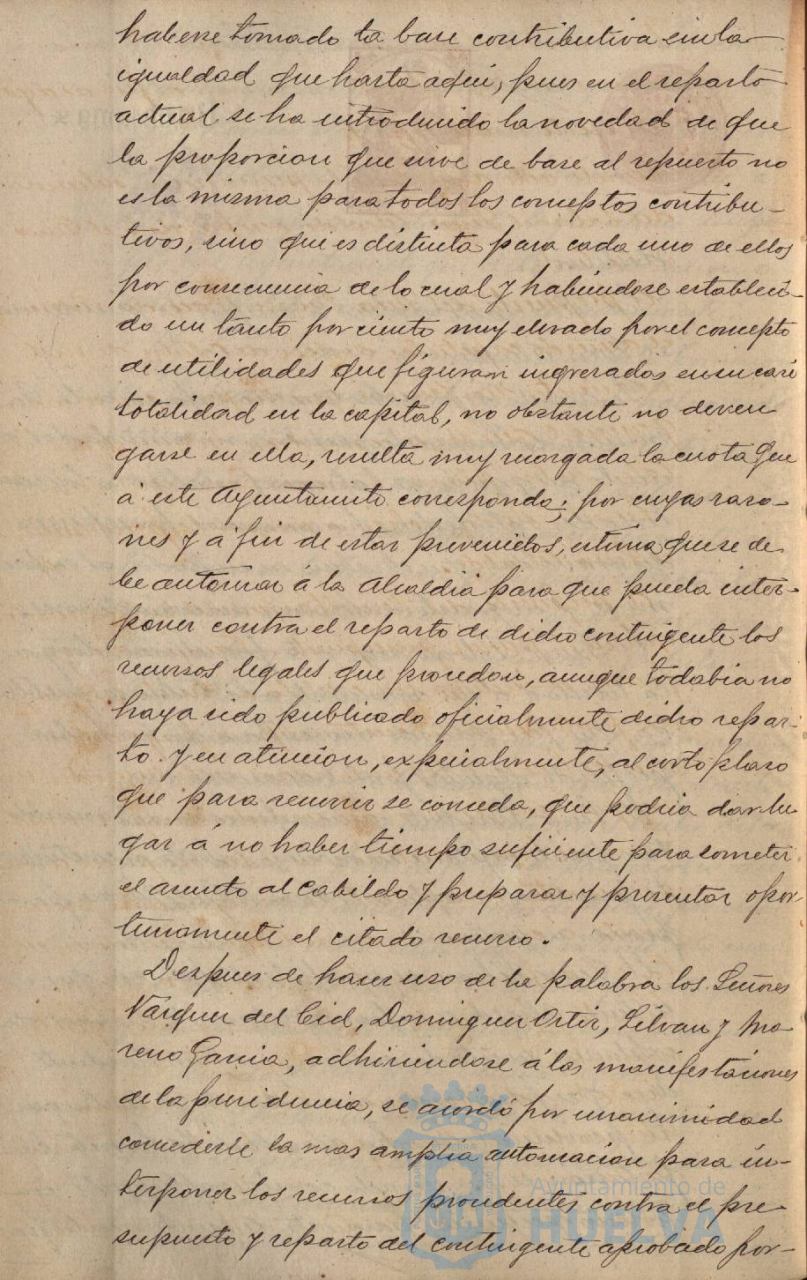 haberse tomado la base contributiva en la
igualdad que hasta aqui, pues en el reparto
actual se ha introducido la novedad de que
la proporcion que sirve de base al repuesto no
es la misma para todos los conceptos contribu-
tivos, sino que es distinta para cada uno de ellos
por consecuencia de lo cual y habiendose estableci-
do un tanto por ciento muy elevado por el concepto
de utilidades que figuran ingresadas en su casi
totalidad en la capital, no obstante no deven
garse en ella, resulta muy recargada la cuota que
á este Ayuntamiento corresponda; por cuyas razo-
nes y á fin de estar prevenidos, estima que se de
be autorizar á la Alcaldia para que pueda inter-
poner contra el reparto de dicho contingente los
recursos legales que procedan, aunque todabia no
haya sido publicado oficialmente dicho repar-
to y en atencion, expecialmente, al corto plazo
que para recurrir se conceda, que podria dar lu
gar á no haber tiempo suficiente para someter
el asunto al Cabildo y preparar y presentar opor
tunamente el citado recurso.
Despues de hacer uso de la palabra los Señores
Vazquez del Cid, Dominguez Ortiz, Silvan y Mo
reno Garcia, adhiriendose á las manifestaciones
de la presidencia, se acordó por unanimidad
concederle la mas amplia autorizacion para in-
terponer los recursos procedentes contra el pre
supuesto y reparto del contingente aprobado por-
Ayuntamiento de
HUELVA